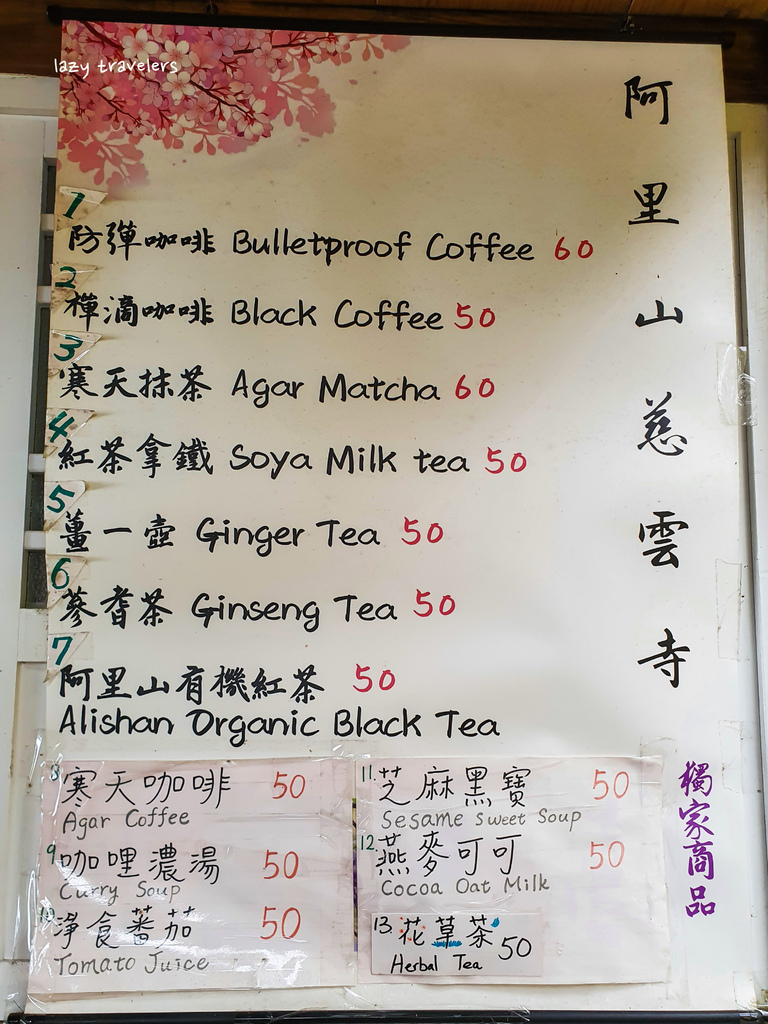 lazy travelers
阿里山慈雲寺
1
防彈咖啡 Bulletproof Coffee 60
2
禪滴咖啡 Black Coffee 50
3
寒天抹茶 Agar Matcha 60
4
紅茶拿鐵 Soya Milk tea 50
5
薑一壺 Ginger Tea 50
6
蔘耆茶 Ginseng Tea 50
7
阿里山有機紅茶 50
Alishan Organic Black Tea
8 寒天咖啡 50
Agar Coffee
9 咖哩濃湯 50
Curry Soup
10 淨食蕃茄 50
Tomato Juice
11. 芝麻黑寶 50
Sesame Sweet Soup
12. 燕麥可可 50
Cocoa Oat Milk
13. 花草茶 50
Herbal Tea
獨家商品